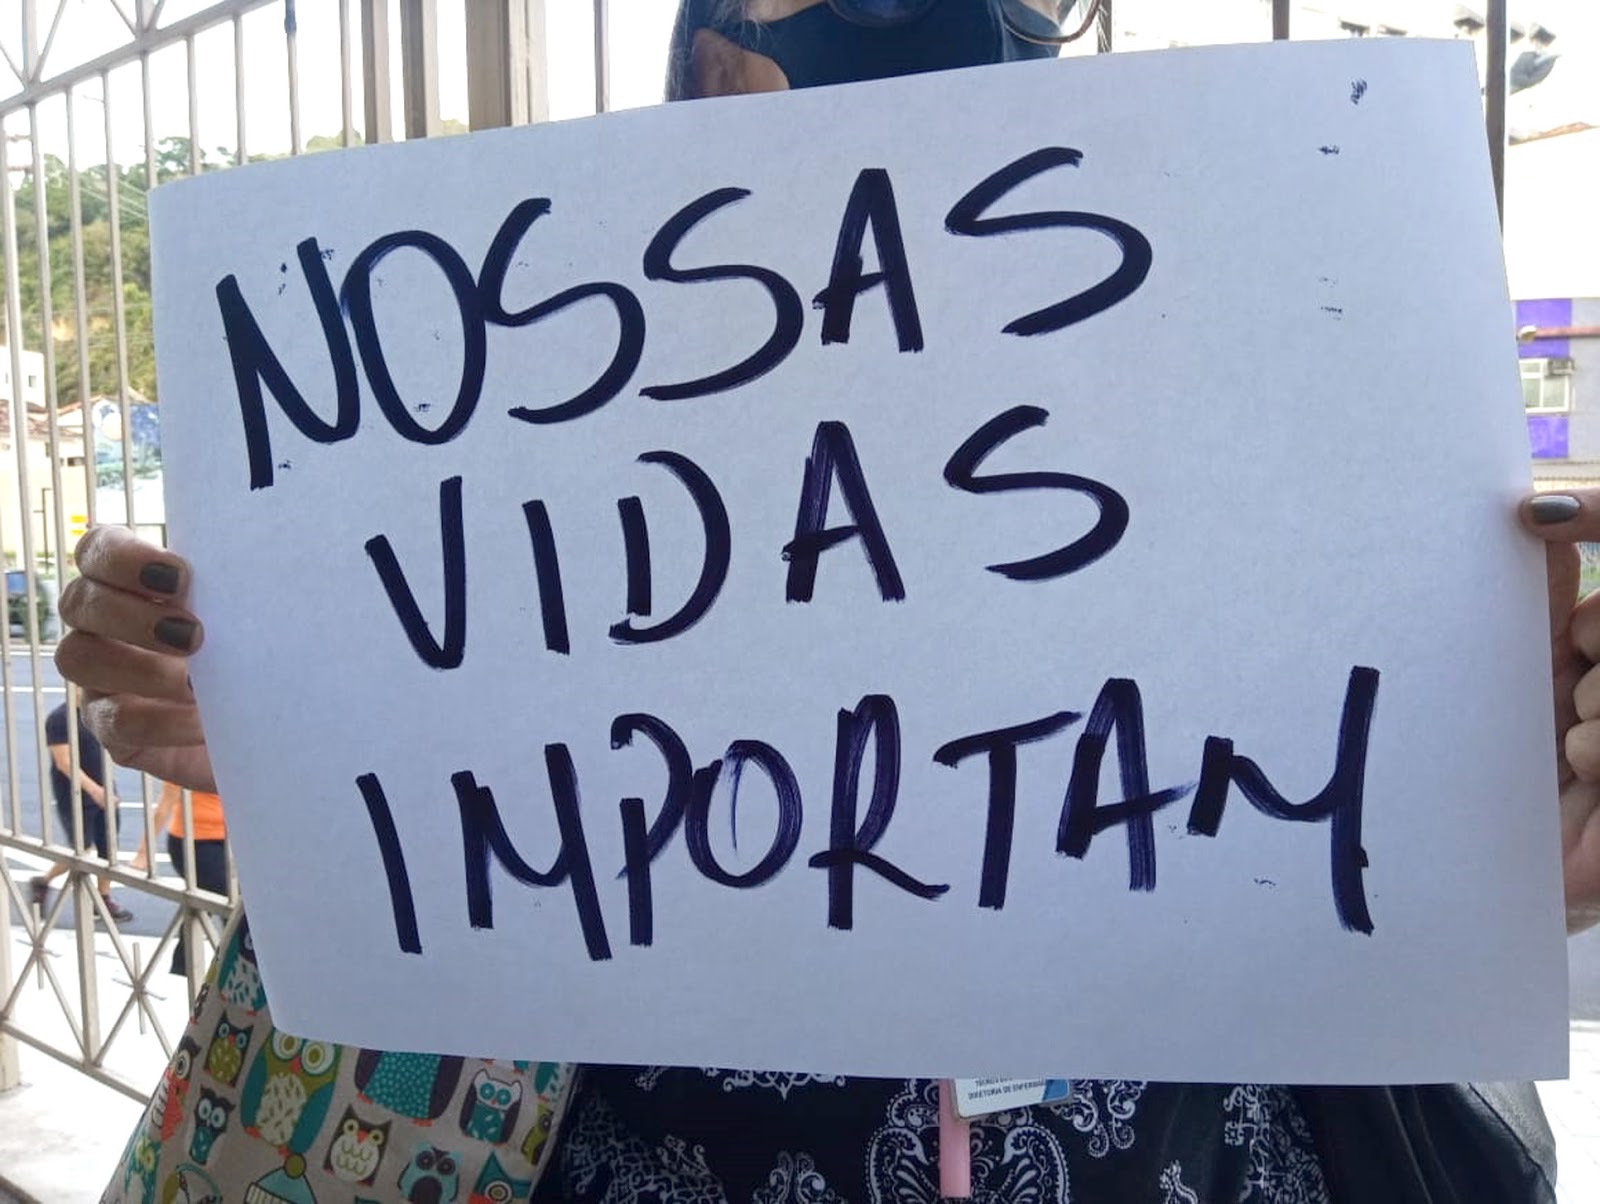 NOSSAS
VIDAS
IMPORTAM
DIRETORIA DE ENFERMAG